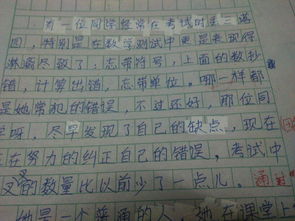 有一位同学经常在考试时丢三落
四,特别是在数学测试中更是表现得
淋漓尽致了:忘带符号,上面的数抄
错,计算出错,忘带单位。哪一样都
是她常犯的错误,不过还好,那位同
学呀,尽早发现了自己的缺点,现在
在努力的纠正自己的错误,考试中
叉的数量比以前少了一点儿。
她是一个普通的人,她在课堂上